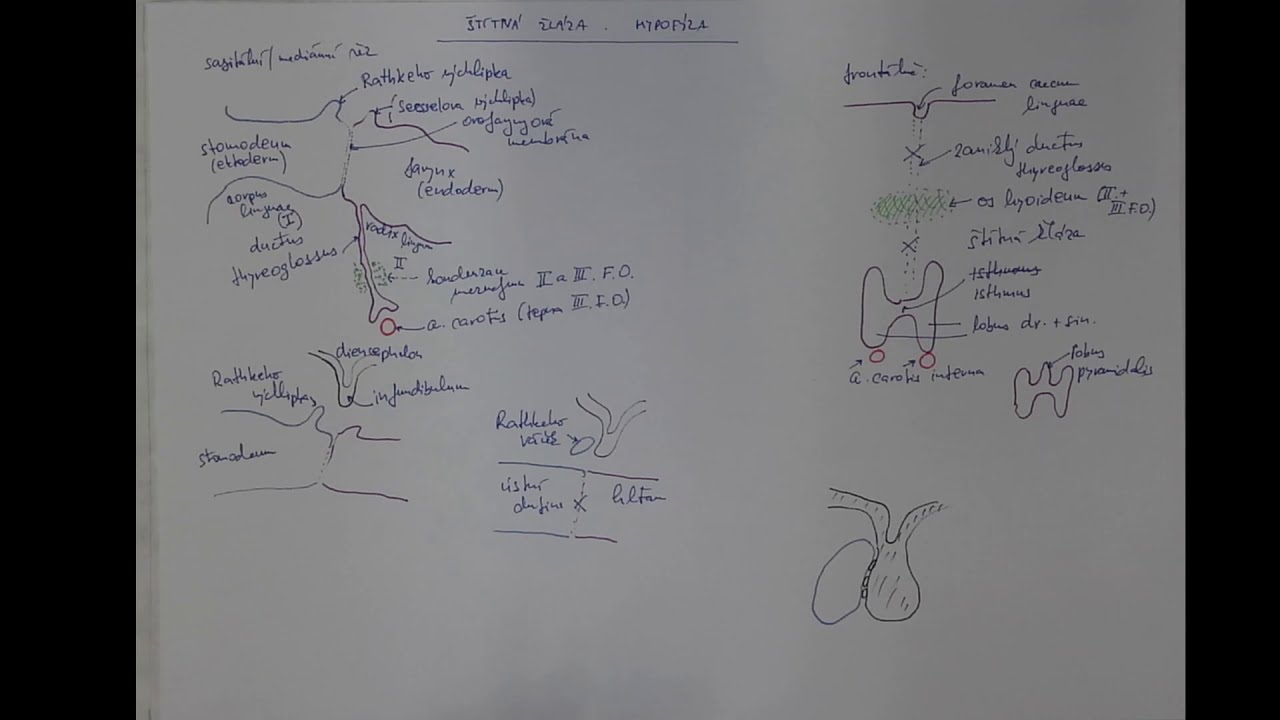 ŠTÍTNÁ ŽLÁZA . HYPOFÝZA
sagitální/mediánní řez
Rathkeho výchlipka
(Seeselova výchlipka)
orofaryngová
membrána
stomodeum
(ektoderm)
farynx
(endoderm)
corpus
linguae
(I)
radix
lingua
ductus
thyreoglossus
II
kondenzace
mezenchymu II a III. F.O.
a. carotis (tepna III. F.O.)
frontálně:
foramen caecum
linguae
zaniklý ductus
thyreoglossus
os hyoideum (II.+
III F.O.)
štítná žláza
isthmus
lobus dr. + sin.
a. carotis interna
lobus
pyramidalis
diencephalon
Rathkeho
výchlipka
infundibulum
stomodeum
Rathkeho
váček
ústní
dutina
hltan